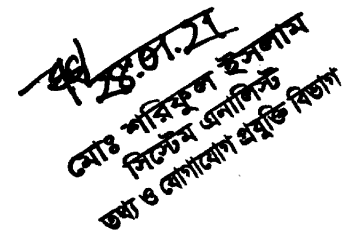 ২৪.০১.২১
মোঃ শরিফুল ইসলাম
সিস্টেম এনালিস্ট
তথ্য ও যোগাযোগ প্রযুক্তি বিভাগ